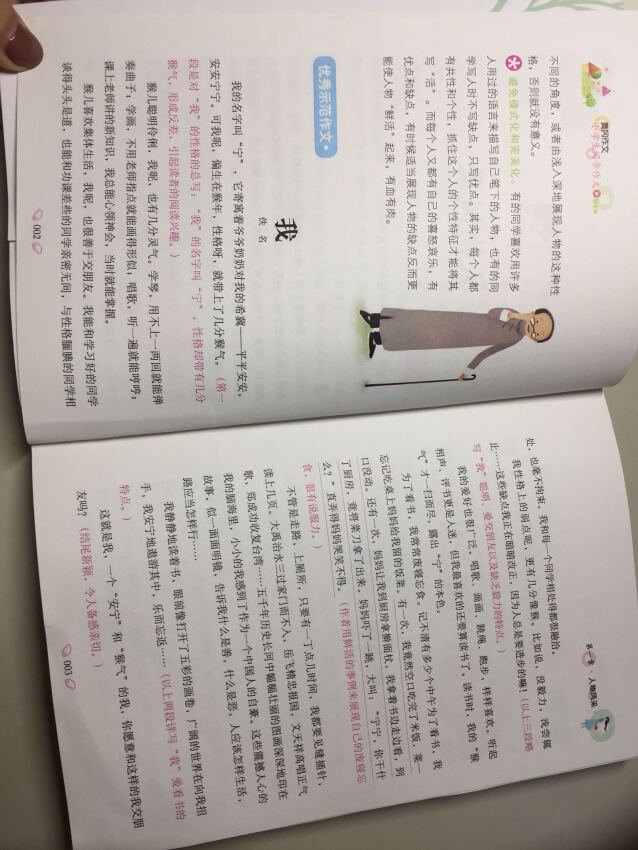 黄冈作文
小学生同步作文
不同的角度，或者由浅入深地展现人物的这种性
格，否则就没有意义。
避免模式化和完美化。有的同学喜欢用许多
人用过的语言来描写自己笔下的人物，也有的同
学写人时不写缺点，只写优点。其实，每个人都
有共性和个性，抓住这个人的个性特征才能将其
写“活”。而每个人又都有自己的喜怒哀乐，有
优点和缺点，有时候适当展现人物的缺点反而更
能使人物“鲜活”起来，有血有肉。
优秀示范作文
我
佚名
我的名字叫“宁”，它寄寓着爷爷奶奶对我的希冀——平平安安，
安安宁宁。可我呢，偏生在猴年，性格呀，就带上了几分猴气。（第一
段是对“我”的性格的总写：“我”的名字叫“宁”，性格却带有几分
猴气，形成反差，引起读者的阅读兴趣。）
猴儿聪明伶俐，我呢，也有几分灵气。学琴，用不上一两回就能弹
奏曲子；学画，不用老师指点就能画得形似；唱歌，听一遍就能哼哼；
课上老师讲的新知识，我总能心领神会，当时就能掌握。
猴儿喜欢集体生活，我呢，也很善于交朋友。我能和学习好的同学
谈得头头是道，也能和功课差些的同学亲密无间，与性格腼腆的同学相
002
第一章·人物风采
处，也毫不拘束。我和每一个同学相处得都很融洽。
我性格上的弱点呢，更有几分像猴。比如说，没毅力，浅尝辄
止……这些缺点我正在暗暗改正，因为人总是要进步的嘛！（以上三段略
写“我”聪明、爱交朋友以及缺乏毅力的特点。）
我的爱好也很广泛。唱歌、画画、跳绳、跑步，样样喜欢。听起
相声、评书更是入迷。但我最喜欢的还要算读书了。读书时，我的“猴
气”才一扫而尽，露出“宁”的本色。
为了看书，我常常废寝忘食。记不清有多少个中午为了看书，我
忘记吃桌上妈妈给我留的饭菜。有一次，我竟然空口吃完了米饭，菜一
口没动。还有一次，妈妈让我到厨房拿擀面杖，我拿着书边走边看，到
了厨房，竟将菜刀拿了出来。妈妈吓了一跳，大叫：“宁宁，你干什
么？”直弄得妈妈哭笑不得。（作者用鲜活的事例来展现自己的废寝忘
食，很有说服力。）
不管是走路，上厕所，只要有一丁点儿时间，我都要见缝插针，
读上几页。大禹治水三过家门而不入，岳飞精忠报国，文天祥高唱正气
歌，郑成功收复台湾……五千年历史长河中幅幅壮丽的图画深深地印在
我的脑海里，小小的我感到了作为一个中国人的自豪。这些震撼人心的
故事，似一面面明镜，告诉我什么是善，什么是恶，人应该怎样生活，
路应当怎样行……
我静静地读着书，眼前像打开了五彩的画卷，广阔的世界在向我招
手，我安宁地遨游其中，乐而忘返……（以上两段详写“我”爱看书的
特点。）
这就是我，一个“安宁”和“猴气”的我，你愿意和这样的我交朋
友吗？（结尾新颖，令人备感亲切。）
003